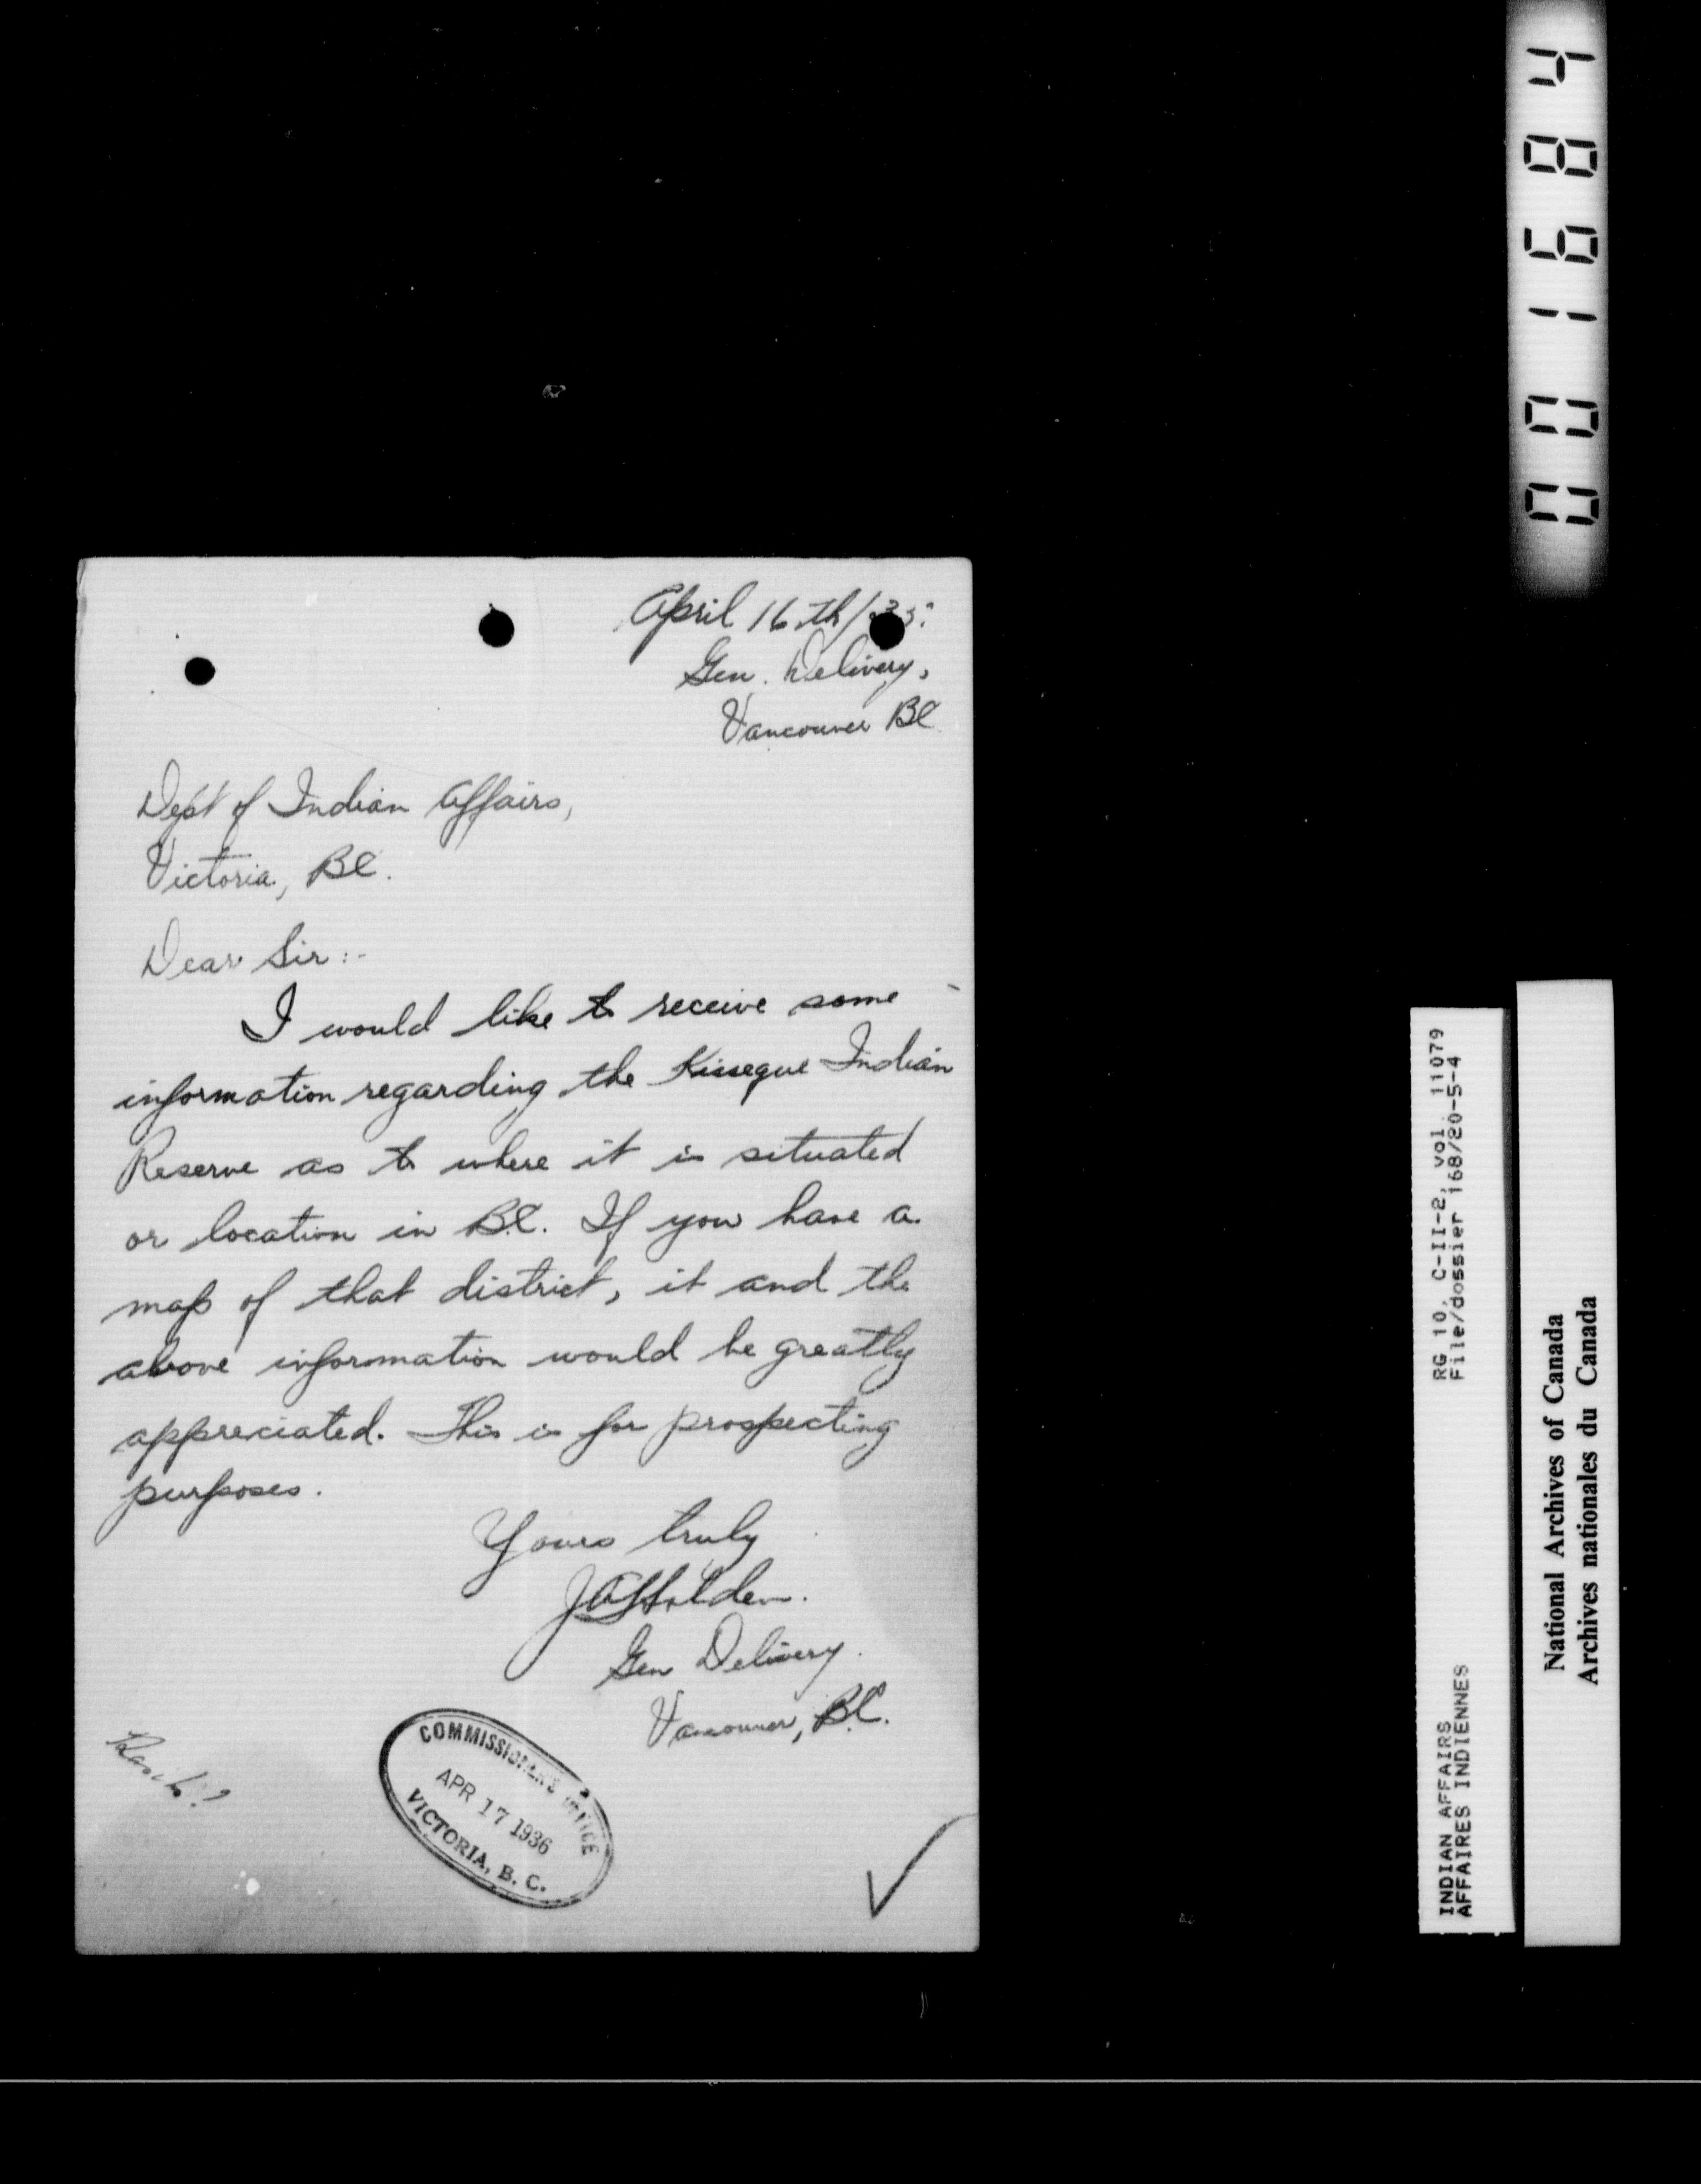 April 16th/35.
Gen. Delivery,
Vancouver BC
Dept of Indian Affairs,
Victoria, BC.
Dear Sir:-
I would like to receive some
information regarding the Kissegue Indian
Reserve as to where it is situated
or location in B.C. If you have a
map of that district, it and the
above information would be greatly
appreciated. This is for prospecting
purposes.
Yours truly
J A Holden.
Gen Delivery.
Vancouver, B.C.
COMMISSIONER'S OFFICE
APR 17 1936
VICTORIA, B. C.
001684
RG 10, C-II-2, vol. 11079
File/dossier 168/20-5-4
INDIAN AFFAIRS
AFFAIRES INDIENNES
National Archives of Canada
Archives nationales du Canada